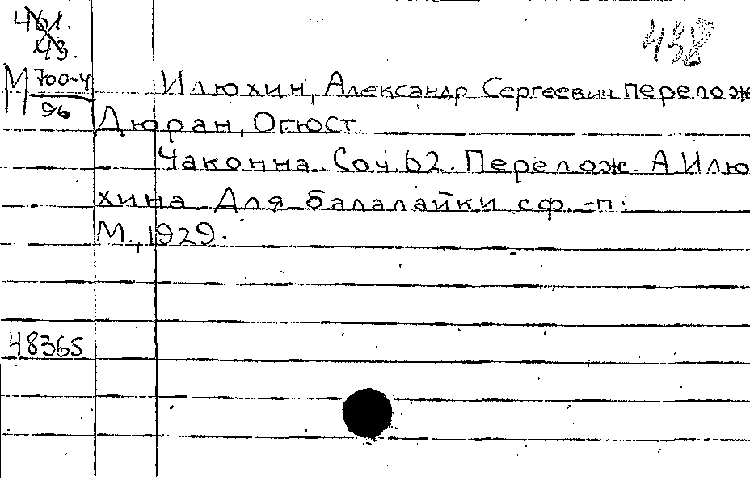 461.
43.
438
М 700-4
96
Илюхин, Александр Сергеевич перелож
Дюран, Огюст
Чаконна Соч. 62. Перелож. А Илю
хина Для балалайки с ф.-п.
М., 1929.
48365